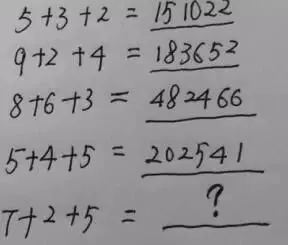 5+3+2 = 151022
9+2+4 = 183652
8+6+3 = 482466
5+4+5 = 202541
7+2+5 = ?